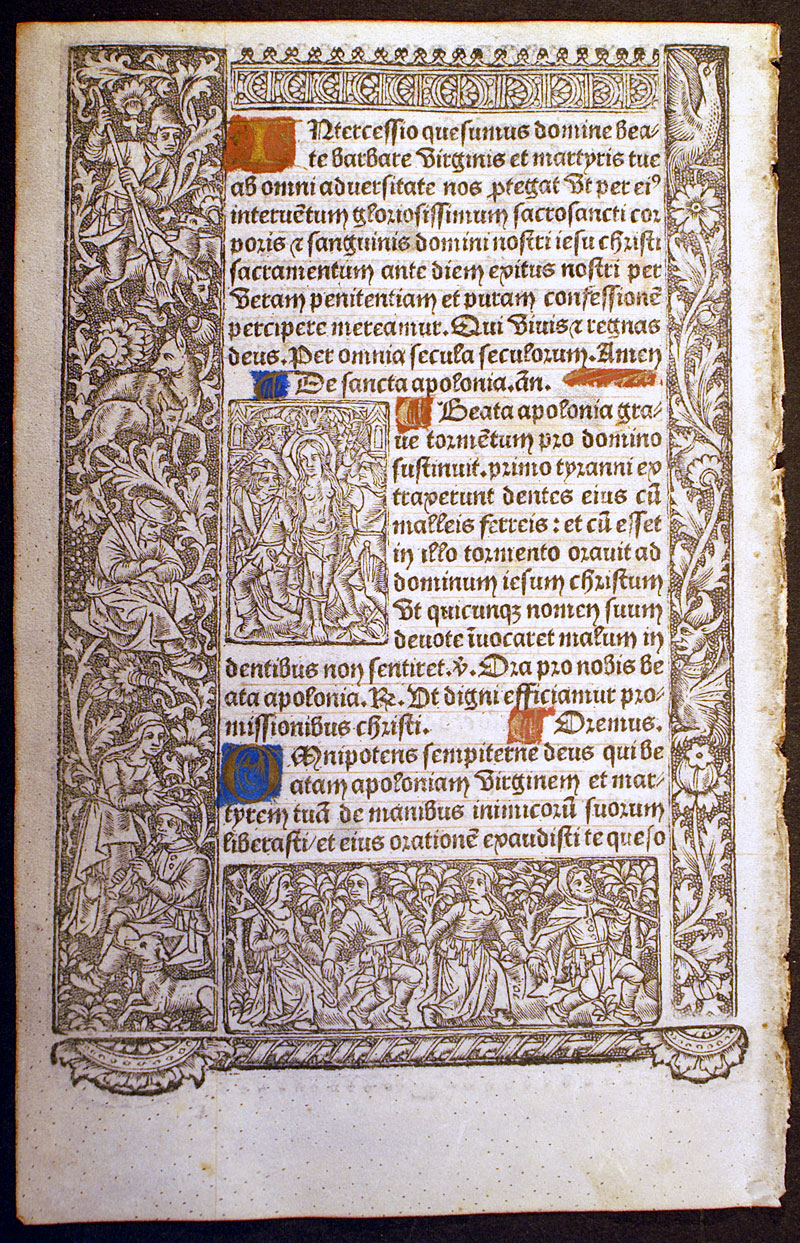 INtercessio quesumus domine bea/
te barbare Virginis et martyris tue
ab omni aduersitate nos ꝓtegat Vt per eiꝰ
interuētum gloriosissimum sacrosancti cor
poris ⁊ sanguinis domini nostri iesu christi
sacramentum ante diem exitus nostri per
Veram penitentiam et puram confessionē
percipere mereamur. Qui Viuis ⁊ regnas
deus. Per omnia secula seculorum. Amen
¶ De sancta apolonia. añ.
¶ Beata apolonia gra/
ue tormētum pro domino
sustinuit. primo tyranni ex
traxerunt dentes eius cū
malleis ferreis : et cū esset
in illo tormento orauit ad
dominum iesum christum
Vt quicunqꝫ nomen suum
deuote īuocaret malum in
dentibus non sentiret. ꝟ. Ora pro nobis be
ata apolonia. ℞. Vt digni efficiamur pro/
missionibus christi. ¶ Oremus.
OMnipotens sempiterne deus qui be
atam apoloniam Virginem et mar/
tyrem tuā de manibus inimicorū suorum
liberasti/ et eius orationē exaudisti te queso